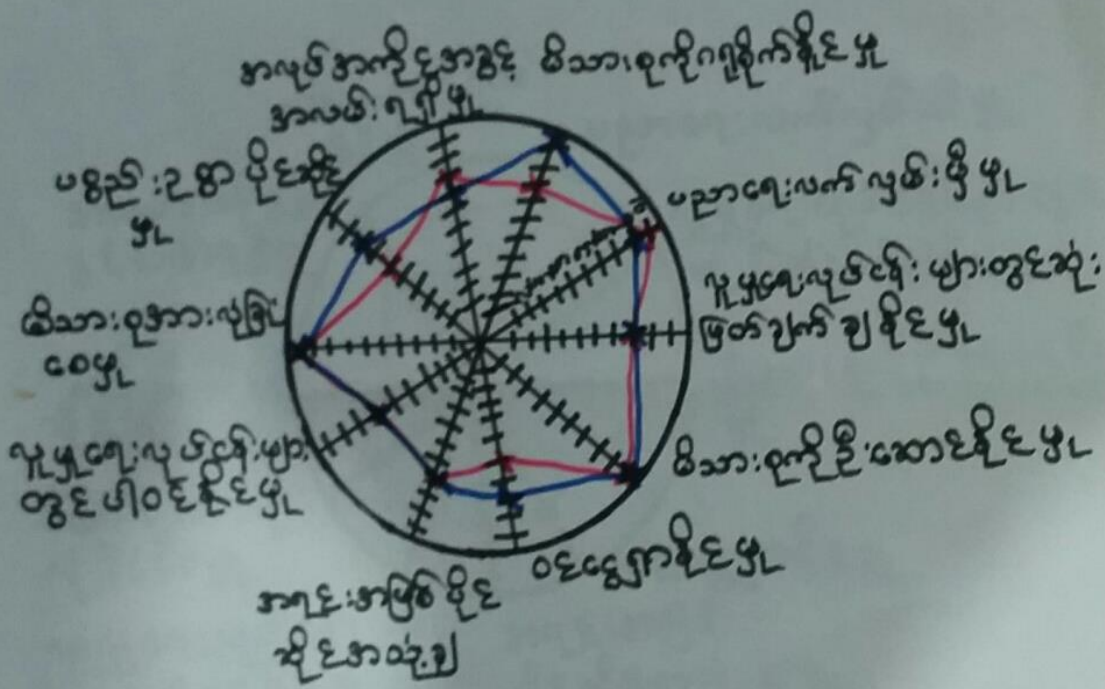 အလုပ်အကိုင်အခွင့်
အလမ်းရရှိမှု
မိသားစုကိုဂရုစိုက်နိုင်မှု
ပညာရေးလက်လှမ်းမှီမှု
လူမှုရေးလုပ်ငန်းများတွင်ဆုံး
ဖြတ်ချက်ချနိုင်မှု
မိသားစုကိုဦးဆောင်နိုင်မှု
ဝင်ငွေရှာနိုင်မှု
အရင်းအမြစ်ပိုင်
ဆိုင်အသုံးချ
လူမှုရေးလုပ်ငန်းများ
တွင်ပါဝင်နိုင်မှု
မိသားစုအားလုံခြုံ
စေမှု
ပစ္စည်းဥစ္စာပိုင်ဆိုင်
မှု